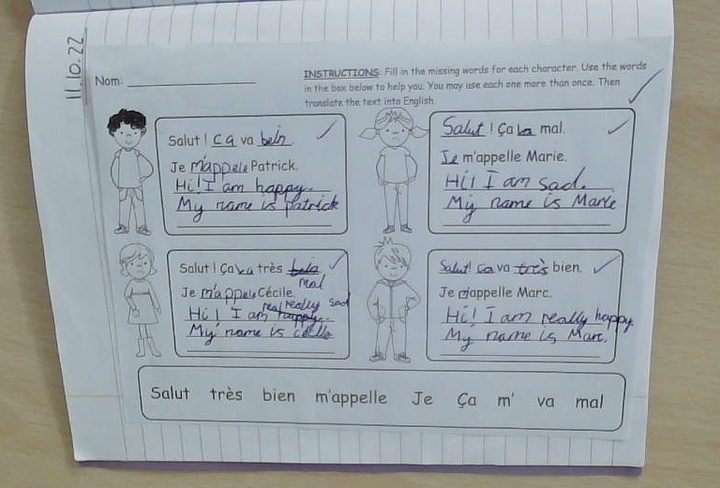 11.10.22
Nom:
INSTRUCTIONS: Fill in the missing words for each character. Use the words
in the box below to help you. You may use each one more than once. Then
translate the text into English.
Salut ! ca va bein.
Je m'appele Patrick.
Hi! I am happy.
My name is patrick
Salut ! Ça va mal.
Je m'appelle Marie.
Hi! I am sad.
My name is Marie
Salut ! Ça va très bein mal
Je m'appele Cécile.
Hi! I am happy. really sad
My name is
Salut! ca va très bien.
Je m'appelle Marc.
Hi! I am really happy.
My name is Marc.
Salut très bien m'appelle Je Ça m' va mal